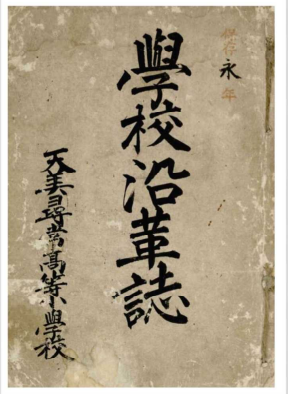 保存永年
學校沿革誌
天美尋常高等小學校